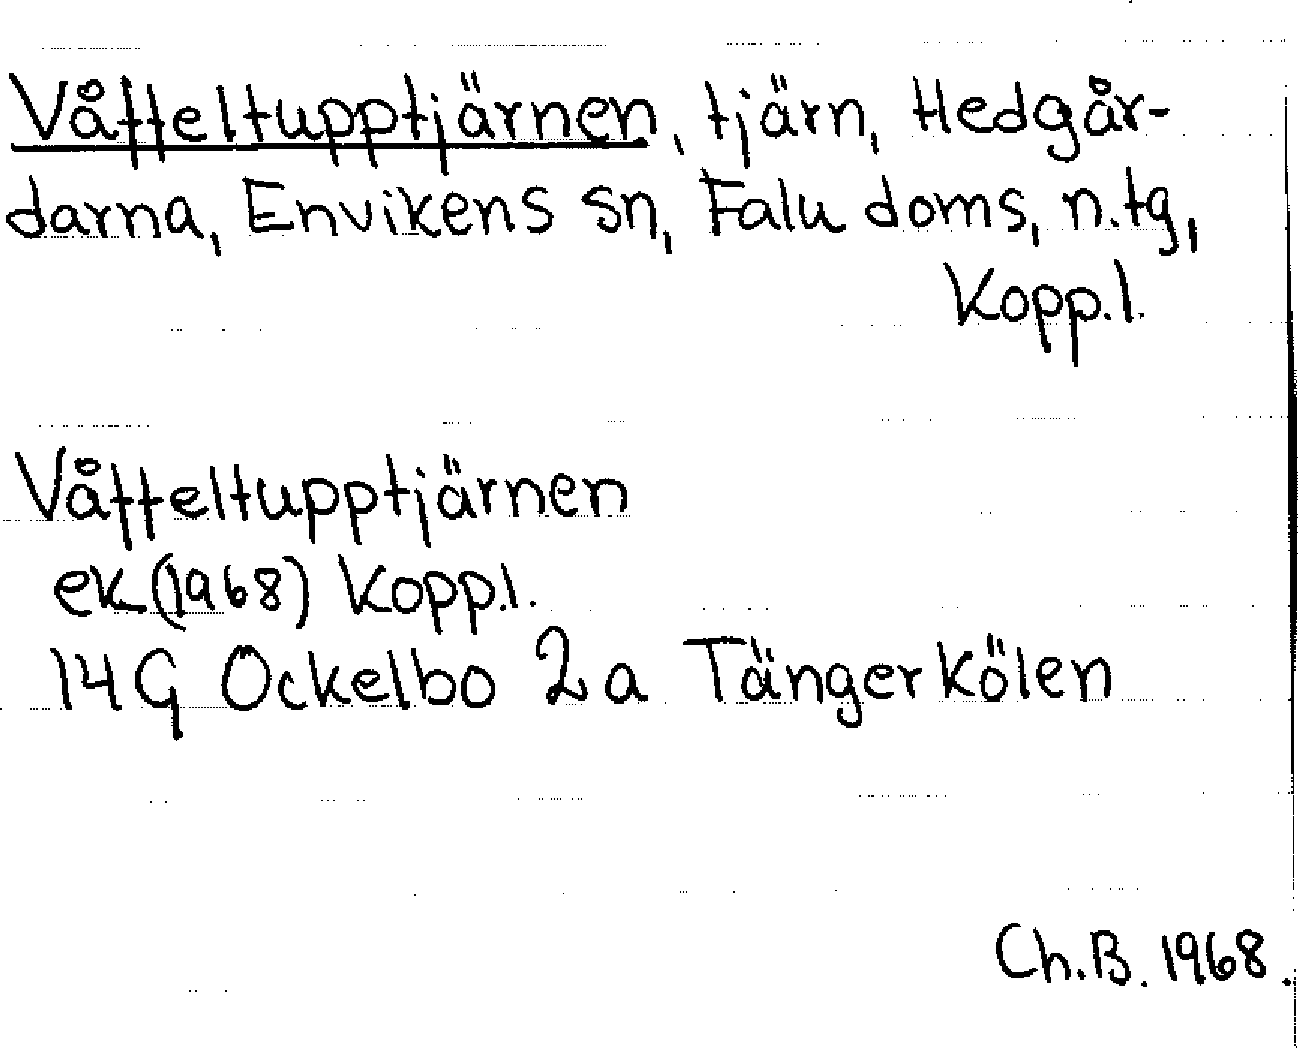 Våtteltupptjärnen, tjärn, Hedgår-
darna, Envikens sn, Falu doms, n.tg,
Kopp.l.
Våtteltupptjärnen
ek (1968) Kopp.l.
14G Ockelbo 2a Tängerkölen
Ch.B. 1968.